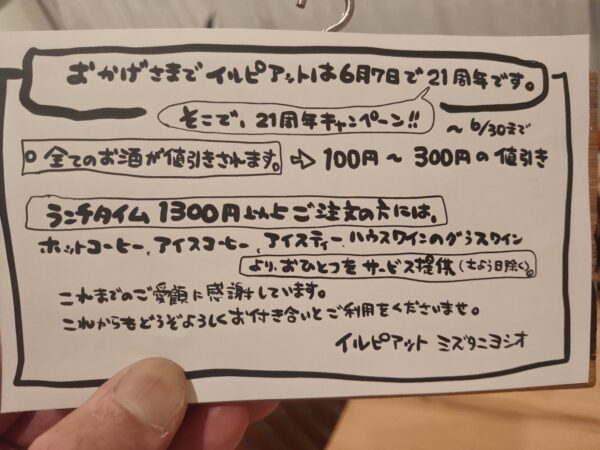 おかげさまでイルピアットは6月7日で21周年です。
そこで、21周年キャンペーン!!
〜6/30まで
。全てのお酒が値引きされます。⇨100円〜300円の値引き
ランチタイム1300円以上ご注文の方には、
ホットコーヒー、アイスコーヒー、アイスティー、ハウスワインのグラスワイン
より、おひとつをサービス提供(土よう日除く)。
これまでのご愛顧に感謝しています。
これからもどうぞよろしくお付き合いとご利用をくださいませ。
イルピアット ミズタニヨシオ